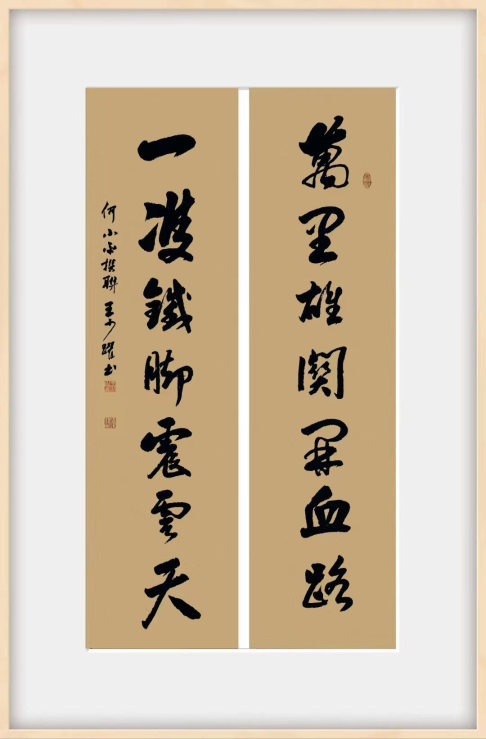 萬里雄關開血路
一雙鐵脚震雲天
何小平撰聯 王少躍书